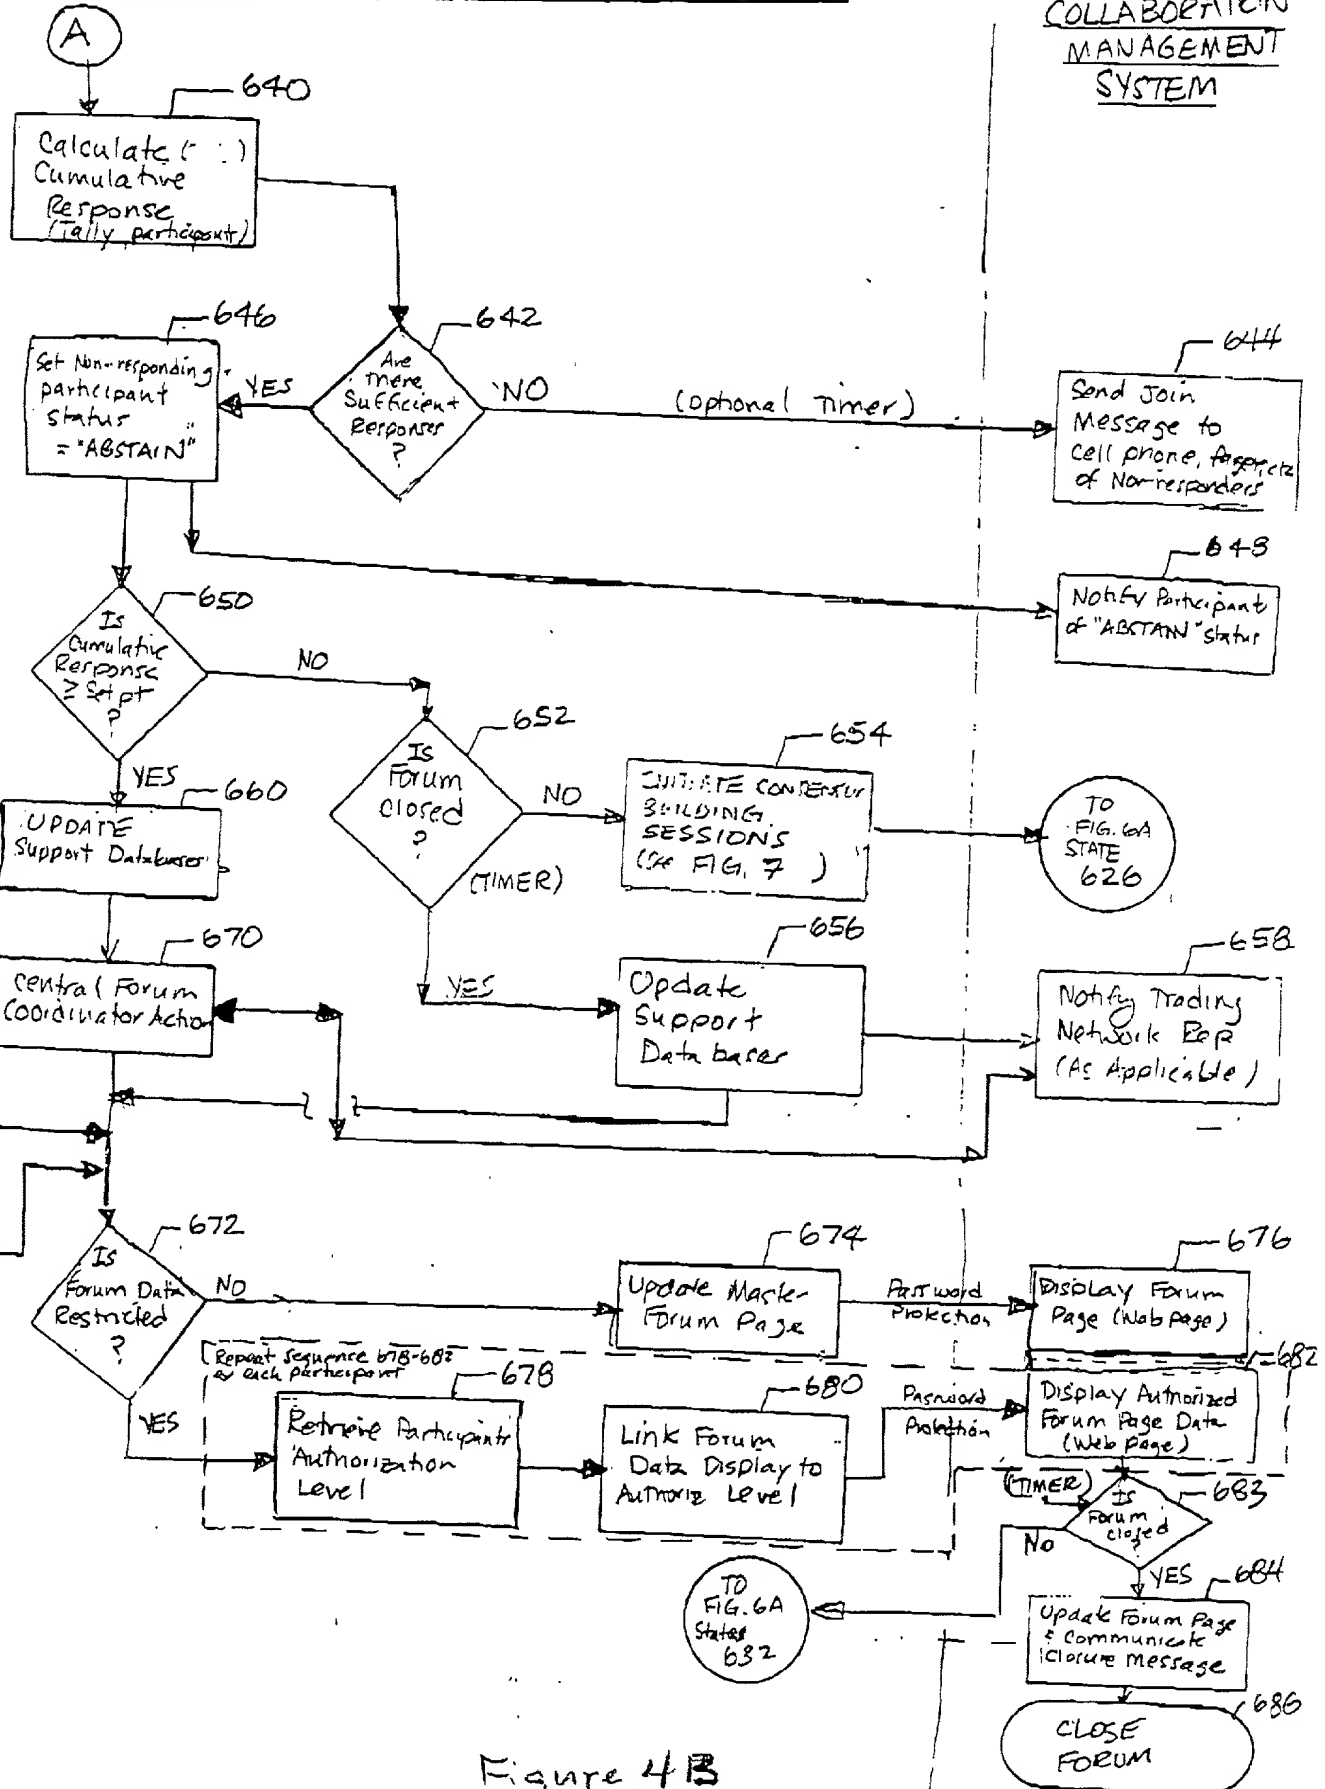 COLLABORATION
MANAGEMENT
SYSTEM
A
640
Calculate
Cumulative
Response
(Tally participant)
646
Set Non-responding
participant
status
= "ABSTAIN"
YES
642
Are
there
Sufficient
Responses
?
NO
(Optional Timer)
644
Send Join
Message to
cell phone, pager, etc
of Non-responders
648
Notify Participant
of "ABSTAIN" status
650
Is
Cumulative
Response
≥ Set pt
?
NO
YES
652
Is
Forum
closed
?
NO
(TIMER)
YES
654
INITIATE CONSENSUS
BUILDING
SESSIONS
(See FIG. 7 )
TO
FIG. 6A
STATE
626
660
UPDATE
Support Databases
670
Central Forum
Coordinator Action
656
Update
Support
Databases
658
Notify Trading
Network Rep
(As Applicable)
672
Is
Forum Data
Restricted
?
NO
YES
674
Update Master
Forum Page
Password
Protection
676
Display Forum
Page (Web page)
Repeat sequence 678-682
for each participant
678
Retrieve Participants
Authorization
Level
680
Link Forum
Data Display to
Authoriz Level
Password
Protection
682
Display Authorized
Forum Page Data
(Web page)
(TIMER)
683
Is
Forum
closed
?
NO
YES
TO
FIG. 6A
States
632
684
Update Forum Page
& Communicate
Closure Message
686
CLOSE
FORUM
Figure 4B